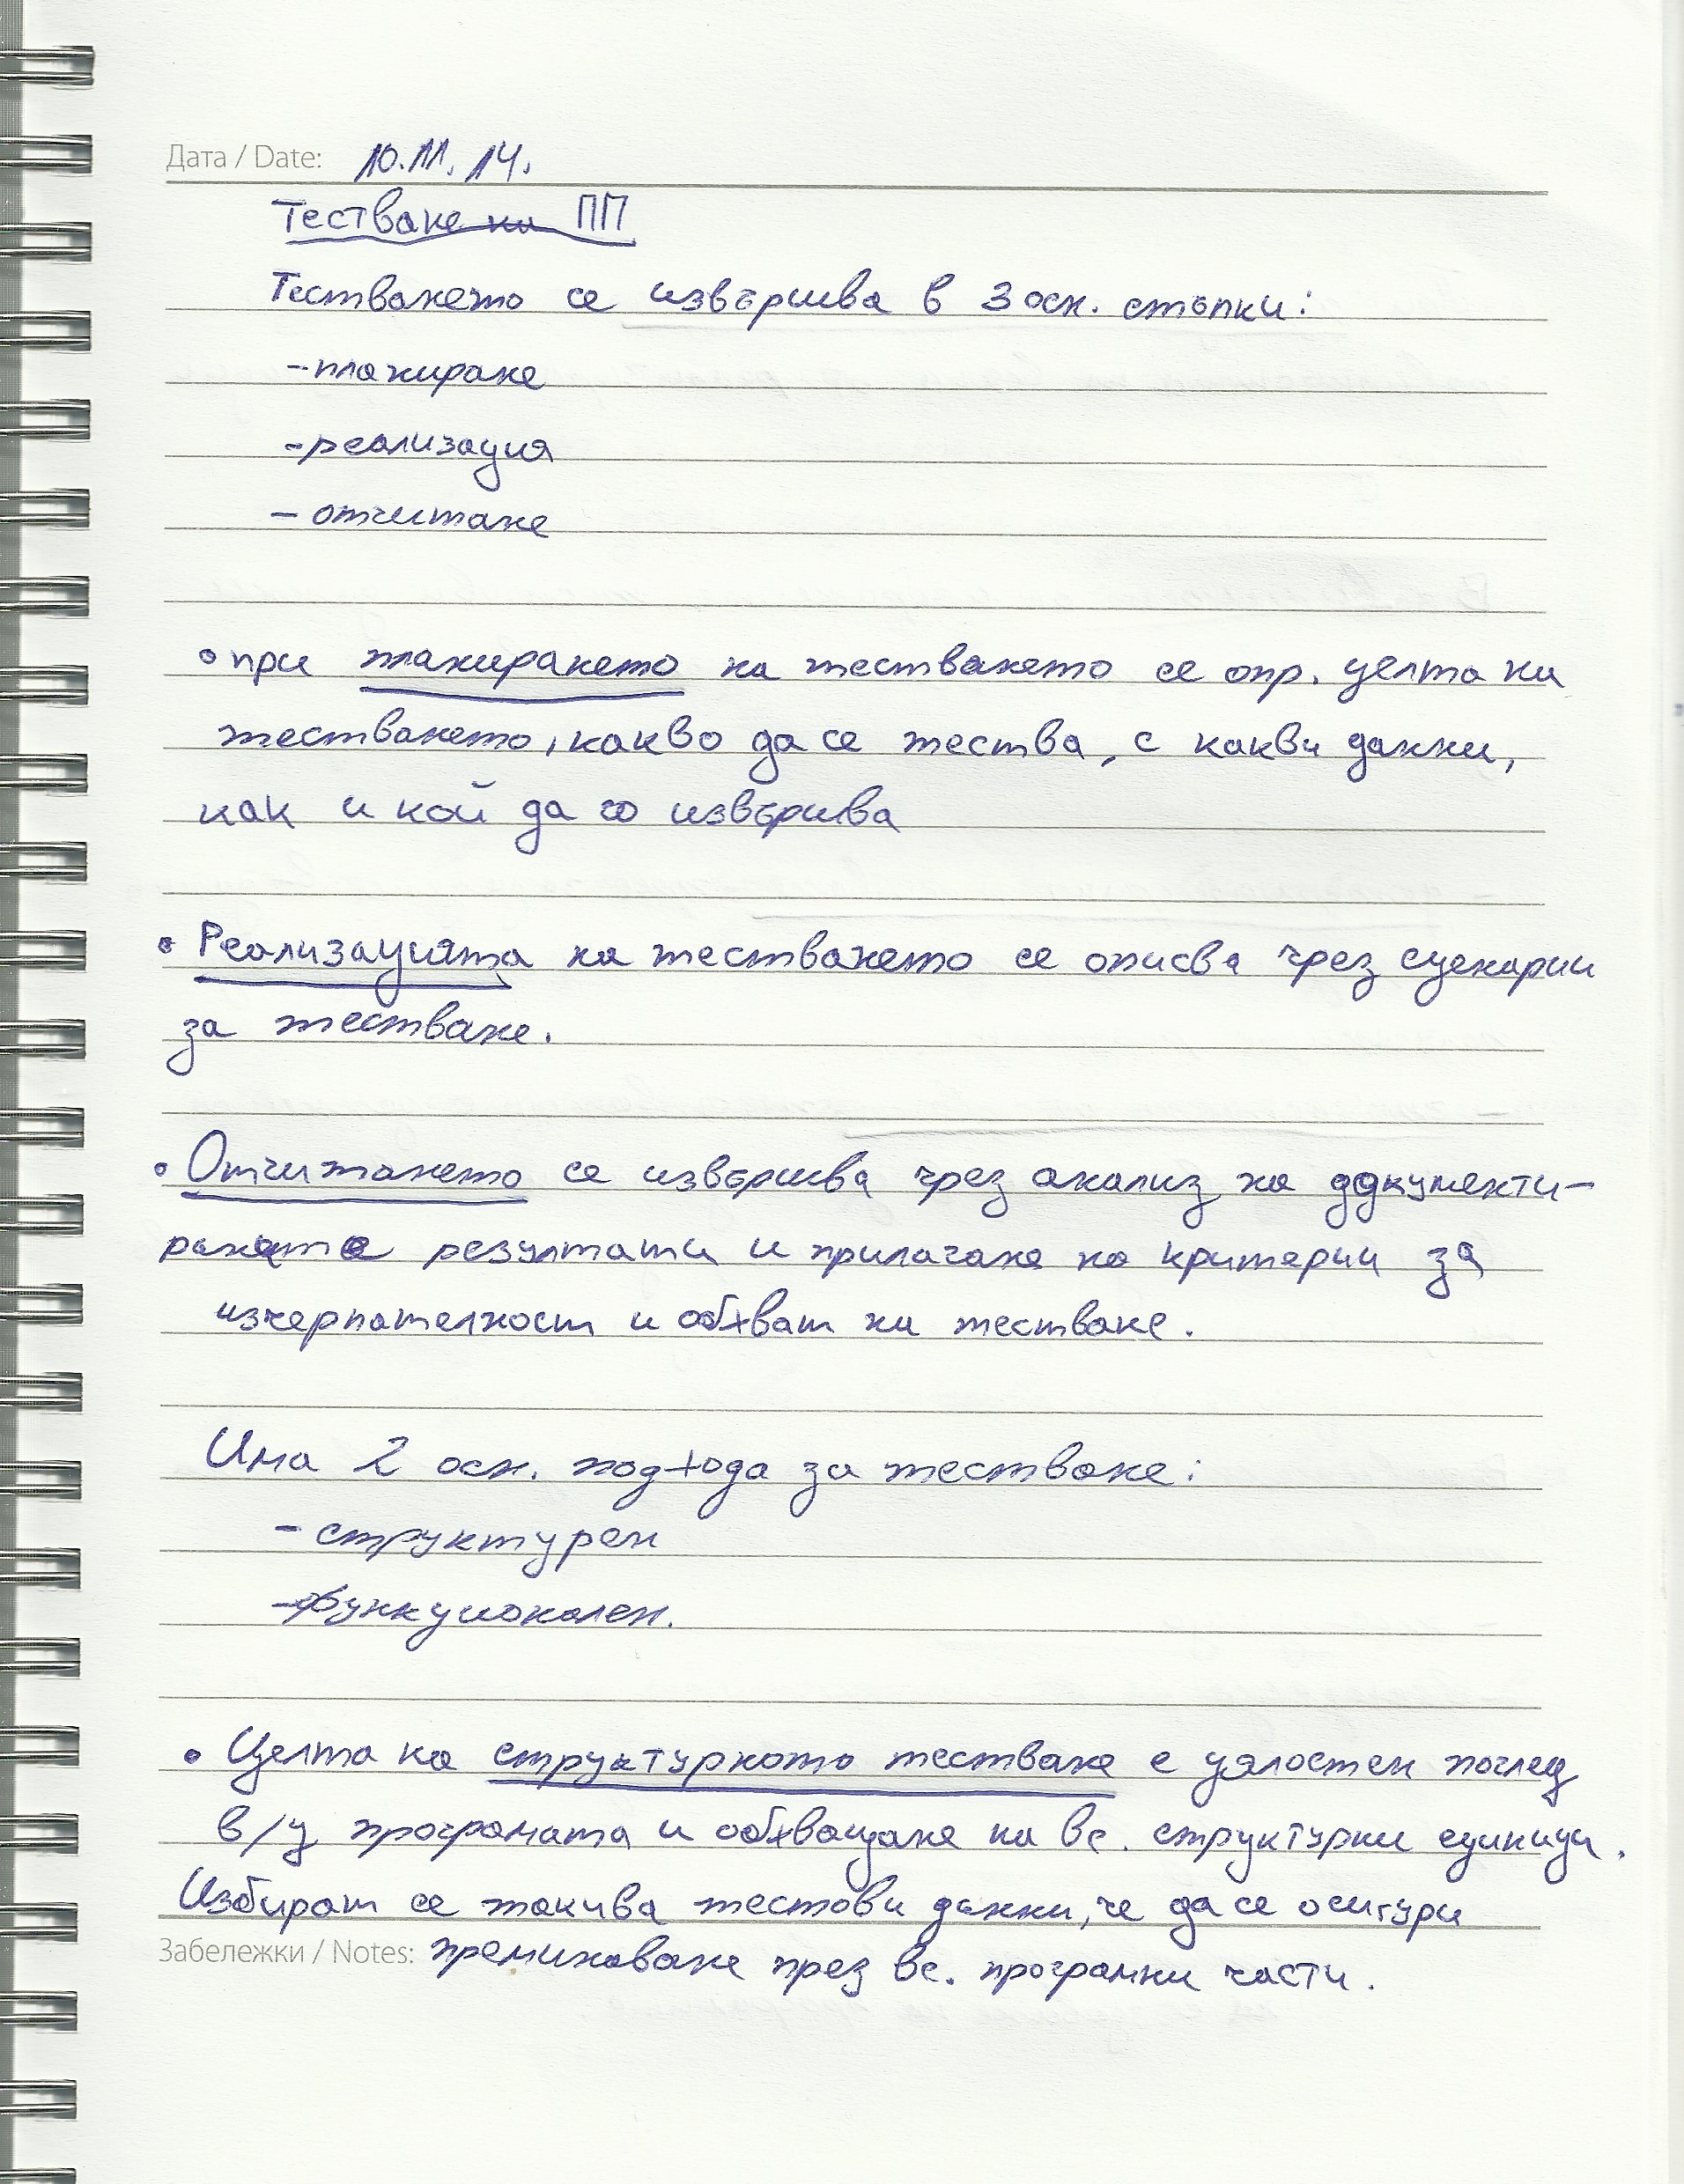 Дата / Date: 10.11.14.
Тестване на ПП
Тестването се извършва в 3 осн. стъпки:
- планиране
- реализация
- отчитане
• при планирането на тестването се опр. целта на
тестването, какво да се тества, с какви данни,
как и кой да го извършва
• Реализацията на тестването се описва чрез сценарии
за тестване.
• Отчитането се извършва чрез анализ на документи-
раните резултати и прилагане на критерии за
изчерпателност и обхват на тестване.
Има 2 осн. подхода за тестване:
- структурен
- функционален.
• Целта на структурното тестване е цялостен поглед
в/у програмата и обхващане на вс. структурни единици.
Избират се такива тестови данни, че да се осигури
Забележки / Notes: преминаване през вс. програмни части.